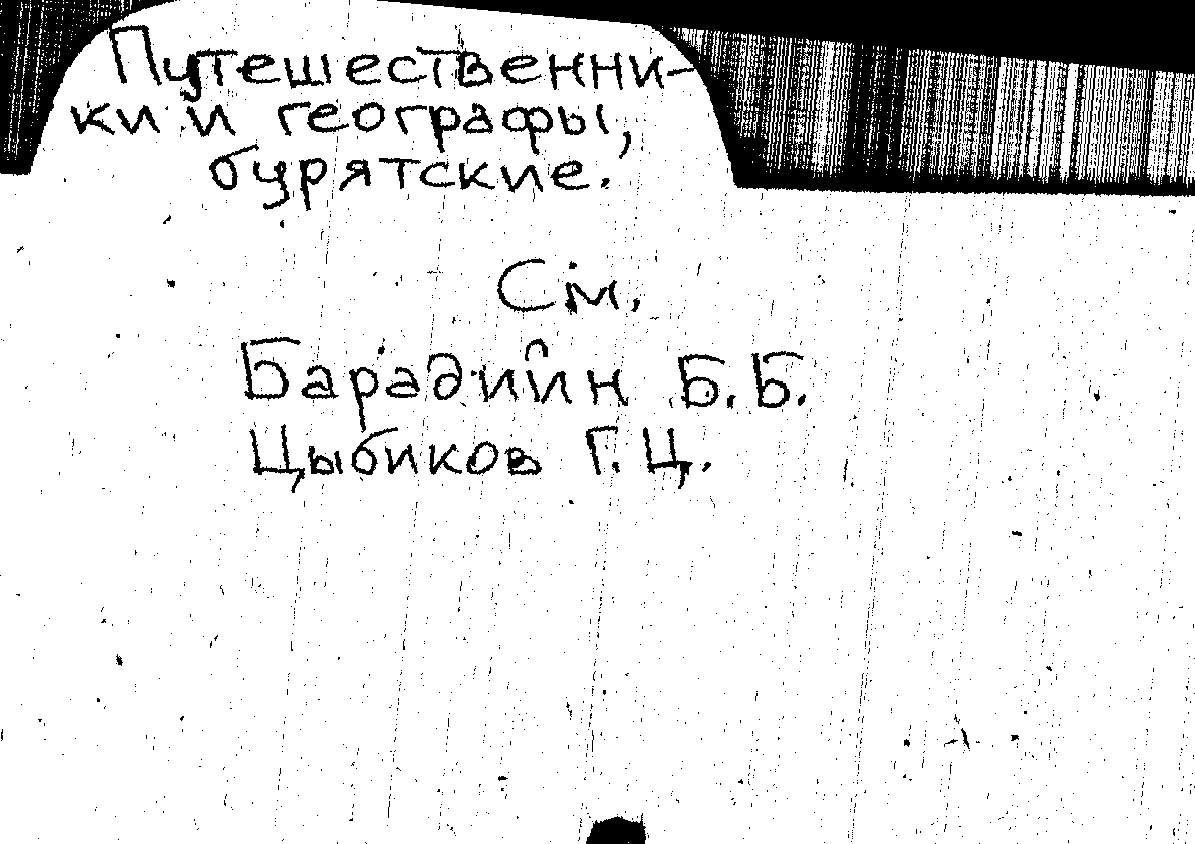 Путешественни-
ки и географы,
бурятские.
См.
Барадийн Б.Б.
Цыбиков Г.Ц.